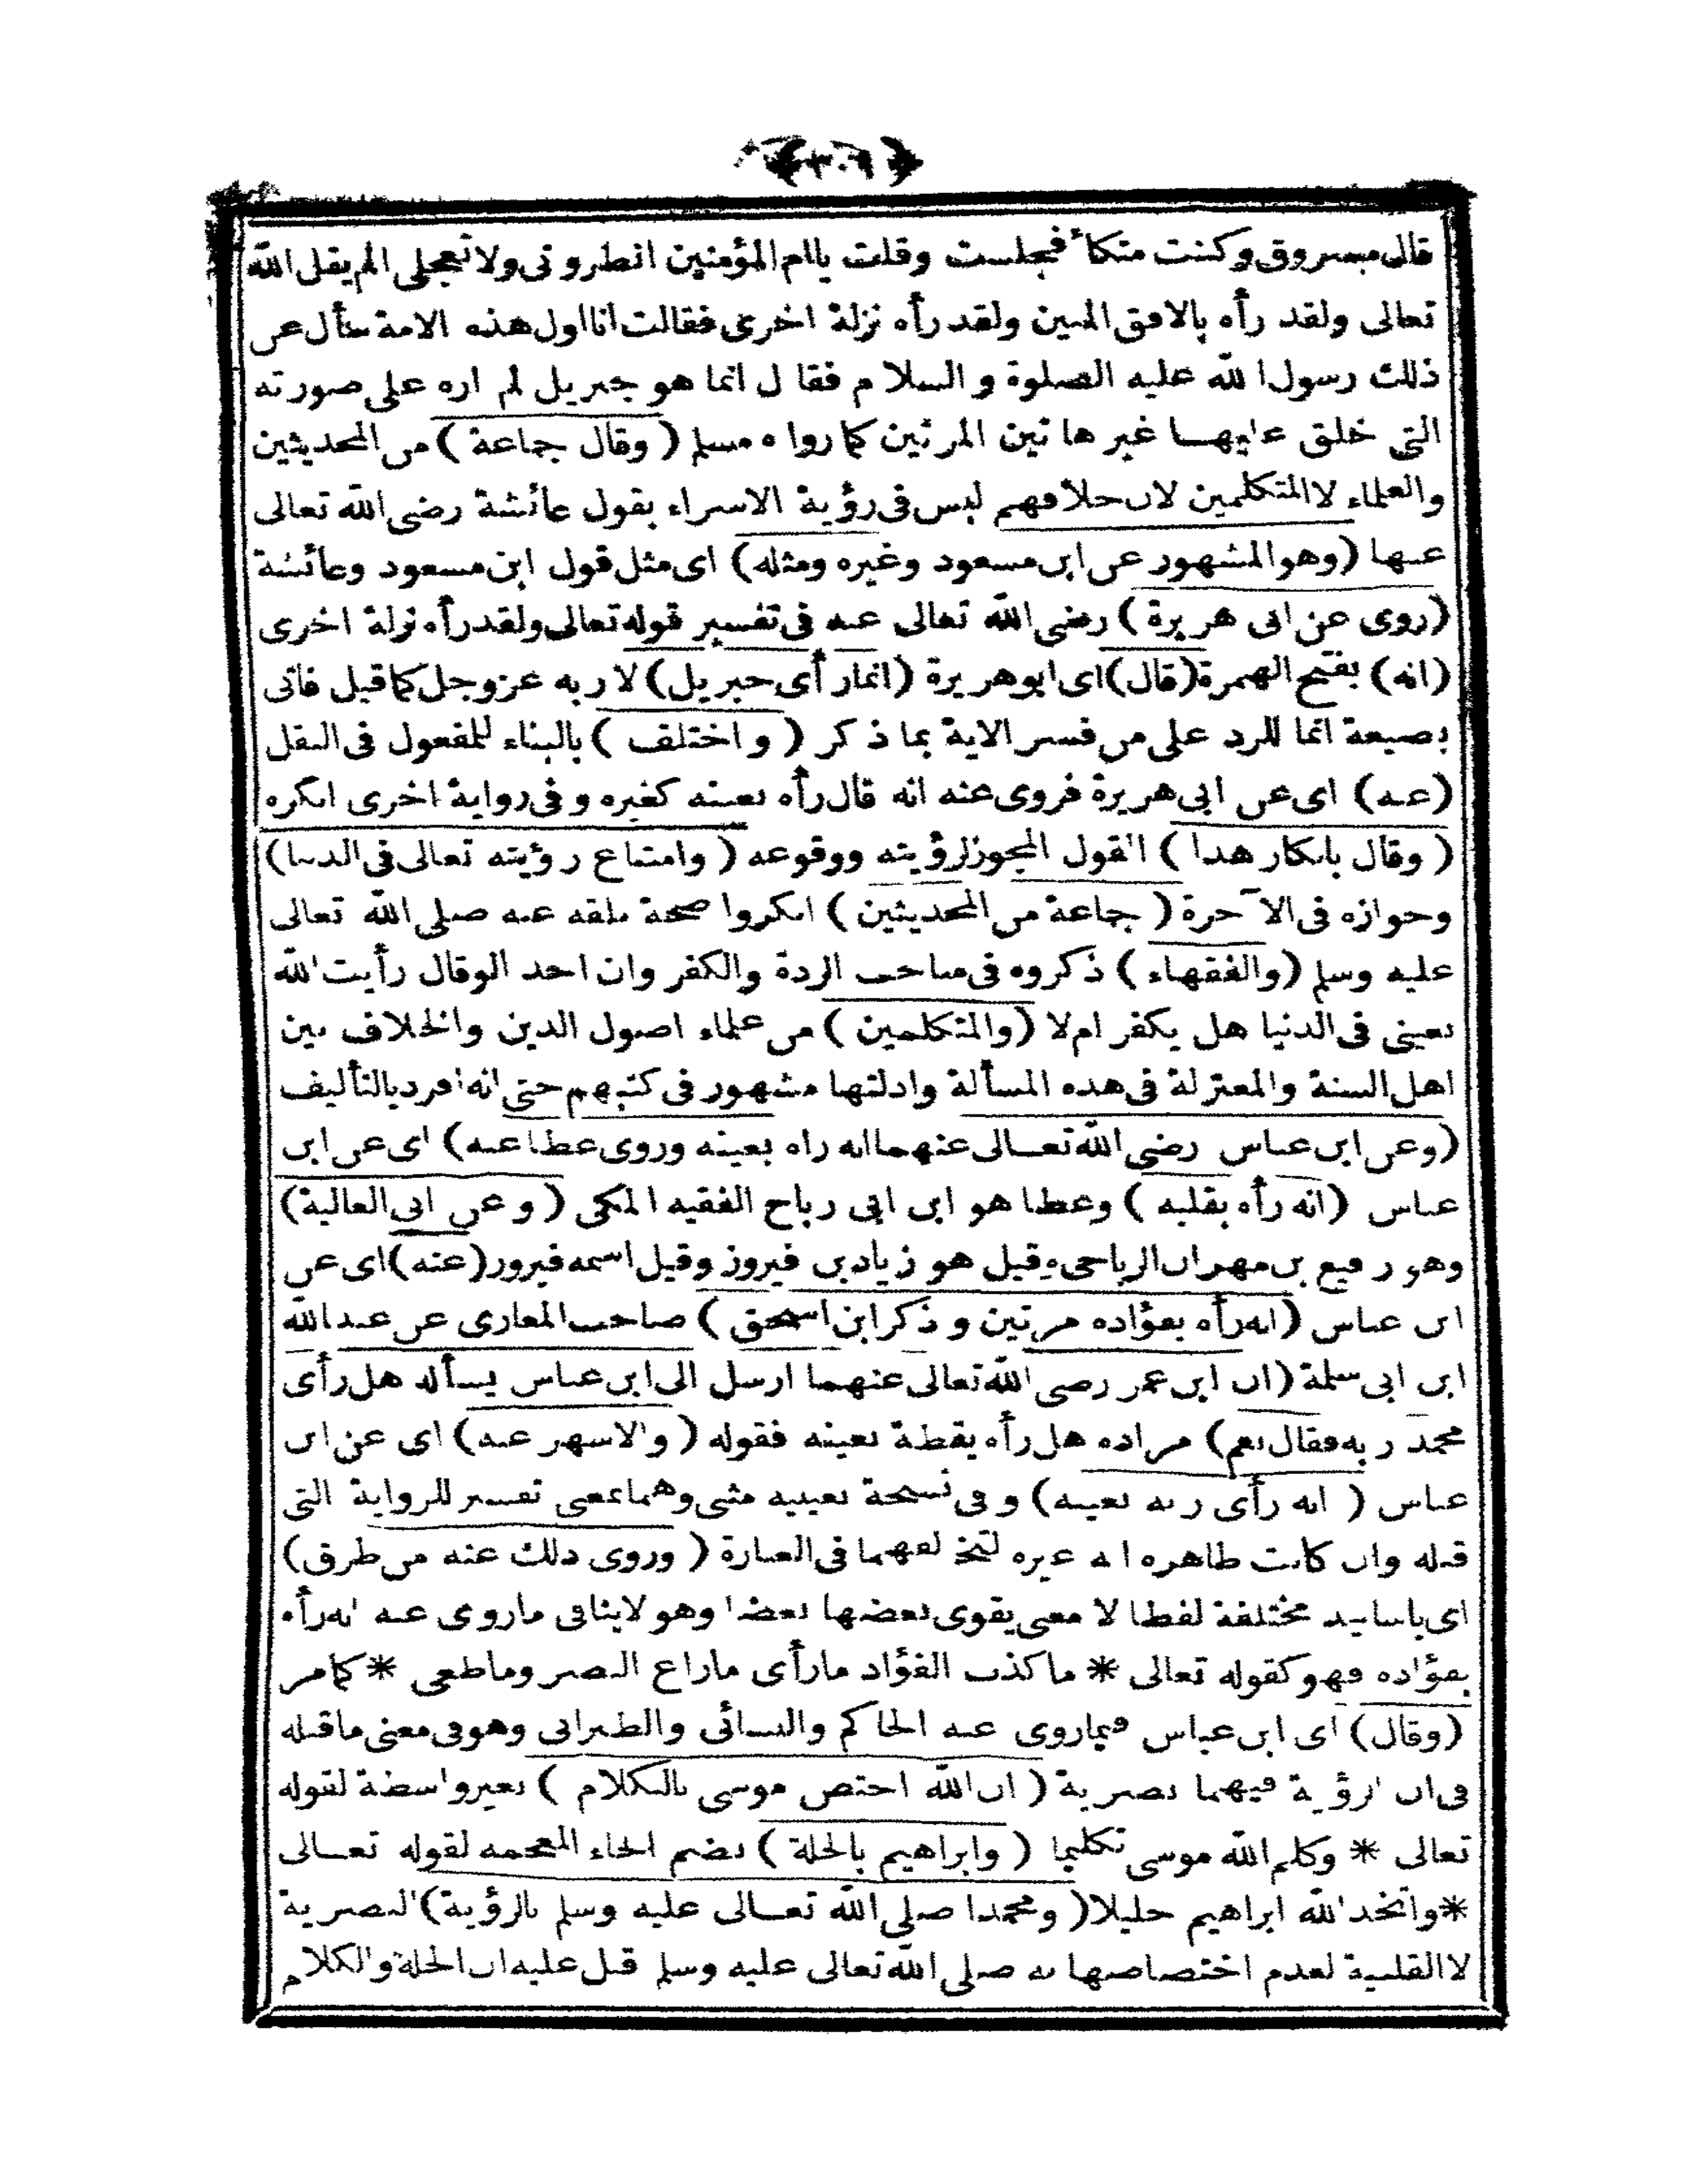 ﴿٣٠٩﴾
قال مسروق وكنت متكأ فجلست وقلت ياام المؤمنين انظرونى ولاتعجلى الم يقل الله
تعالى ولقد رأه بالافق المبين ولقد رأه نزلة اخرى فقالت انا اول هذه الامة سأل عن
ذلك رسول الله عليه الصلوة والسلام فقال انما هو جبريل لم اره على صورته
التى خلق عليهـا غير هاتين المرتين كما رواه مسلم (وقال جماعة) من المحديثين
والعلماء لا المتكلمين لان خلافهم ليس فى رؤية الاسراء بقول عائشة رضى الله تعالى
عنها (وهو المشهور عن ابن مسعود وغيره ومثله) اى مثل قول ابن مسعود وعائشة
(روى عن ابى هريرة) رضى الله تعالى عنه فى تفسير قوله تعالى ولقد رأه نزلة اخرى
(انه) بفتح الهمزة (قال) اى ابو هريرة (انما رأى جبريل) لا ربه عز وجل كما قيل فاتى
بصيغة انما للرد على من فسر الاية بما ذكر (واختلف) بالبناء للمفعول فى النقل
(عنه) اى عن ابى هريرة فروى عنه انه قال رأه بعينه كغيره وفى رواية اخرى انكره
(وقال بانكار هذا) القول المجوز لرؤيته ووقوعه (وامتناع رؤيته تعالى فى الدنيا)
وجوازه فى الآخرة (جماعة من المحديثين) انكروا صحة نقله عنه صلى الله تعالى
عليه وسلم (والفقهاء) ذكروه فى مباحث الردة والكفر وان احد الوقال رأيت الله
بعينى فى الدنيا هل يكفر ام لا (والمتكلمين) من علماء اصول الدين والخلاف بين
اهل السنة والمعتزلة فى هذه المسألة وادلتها مشهور فى كتبهم حتى انه افرد بالتأليف
(وعن ابن عباس رضى الله تعـالى عنهما انه راه بعينه وروى عطا عنه) اى عن ابن
عباس (انه رأه بقلبه) وعطا هو ابن ابى رباح الفقيه المكى (وعن ابى العالية)
وهو رفيع بن مهران الرياحى وقيل هو زياد بن فيروز وقيل اسمه فيروز (عنه) اى عن
ابن عباس (انه رأه بفؤاده مرتين وذكر ابن اسحق) صاحب المغازى عن عبد الله
ابن ابى سلمة (ان ابن عمر رضى الله تعالى عنهما ارسل الى ابن عباس يسأله هل رأى
محمد ربه فقال نعم) مراده هل رأه يقظة بعينه فقوله (والاشهر عنه) اى عن ابن
عباس (انه رأى ربه بعينه) وفى نسخة بعينيه مثنى وهما بمعنى تفسير للرواية التى
قبله وان كانت ظاهره انه غيره لتخالفهما فى العبارة (وروى ذلك عنه من طرق)
اى باسانيد مختلفة لفظا لا معنى يقوى بعضها بعضا وهو لاينافى ماروى عنه انه رأه
بفؤاده فهو كقوله تعالى * ماكذب الفؤاد مارأى مازاغ البصر وماطغى * كمامر
(وقال) اى ابن عباس فيماروى عنه الحاكم والنسائى والطبرانى وهو فى معنى ماقبله
فى ان الرؤية فيهما بصرية (ان الله اختص موسى بالكلام) بغير واسطة لقوله
تعالى * وكلم الله موسى تكليما (وابراهيم بالخلة) بضم الخاء المعجمه لقوله تعـالى
*واتخذ الله ابراهيم خليلا (ومحمدا صلى الله تعـالى عليه وسلم بالرؤية) البصرية
لا القلبية لعدم اختصاصها به صلى الله تعالى عليه وسلم قيل عليه ان الخلة والكلام